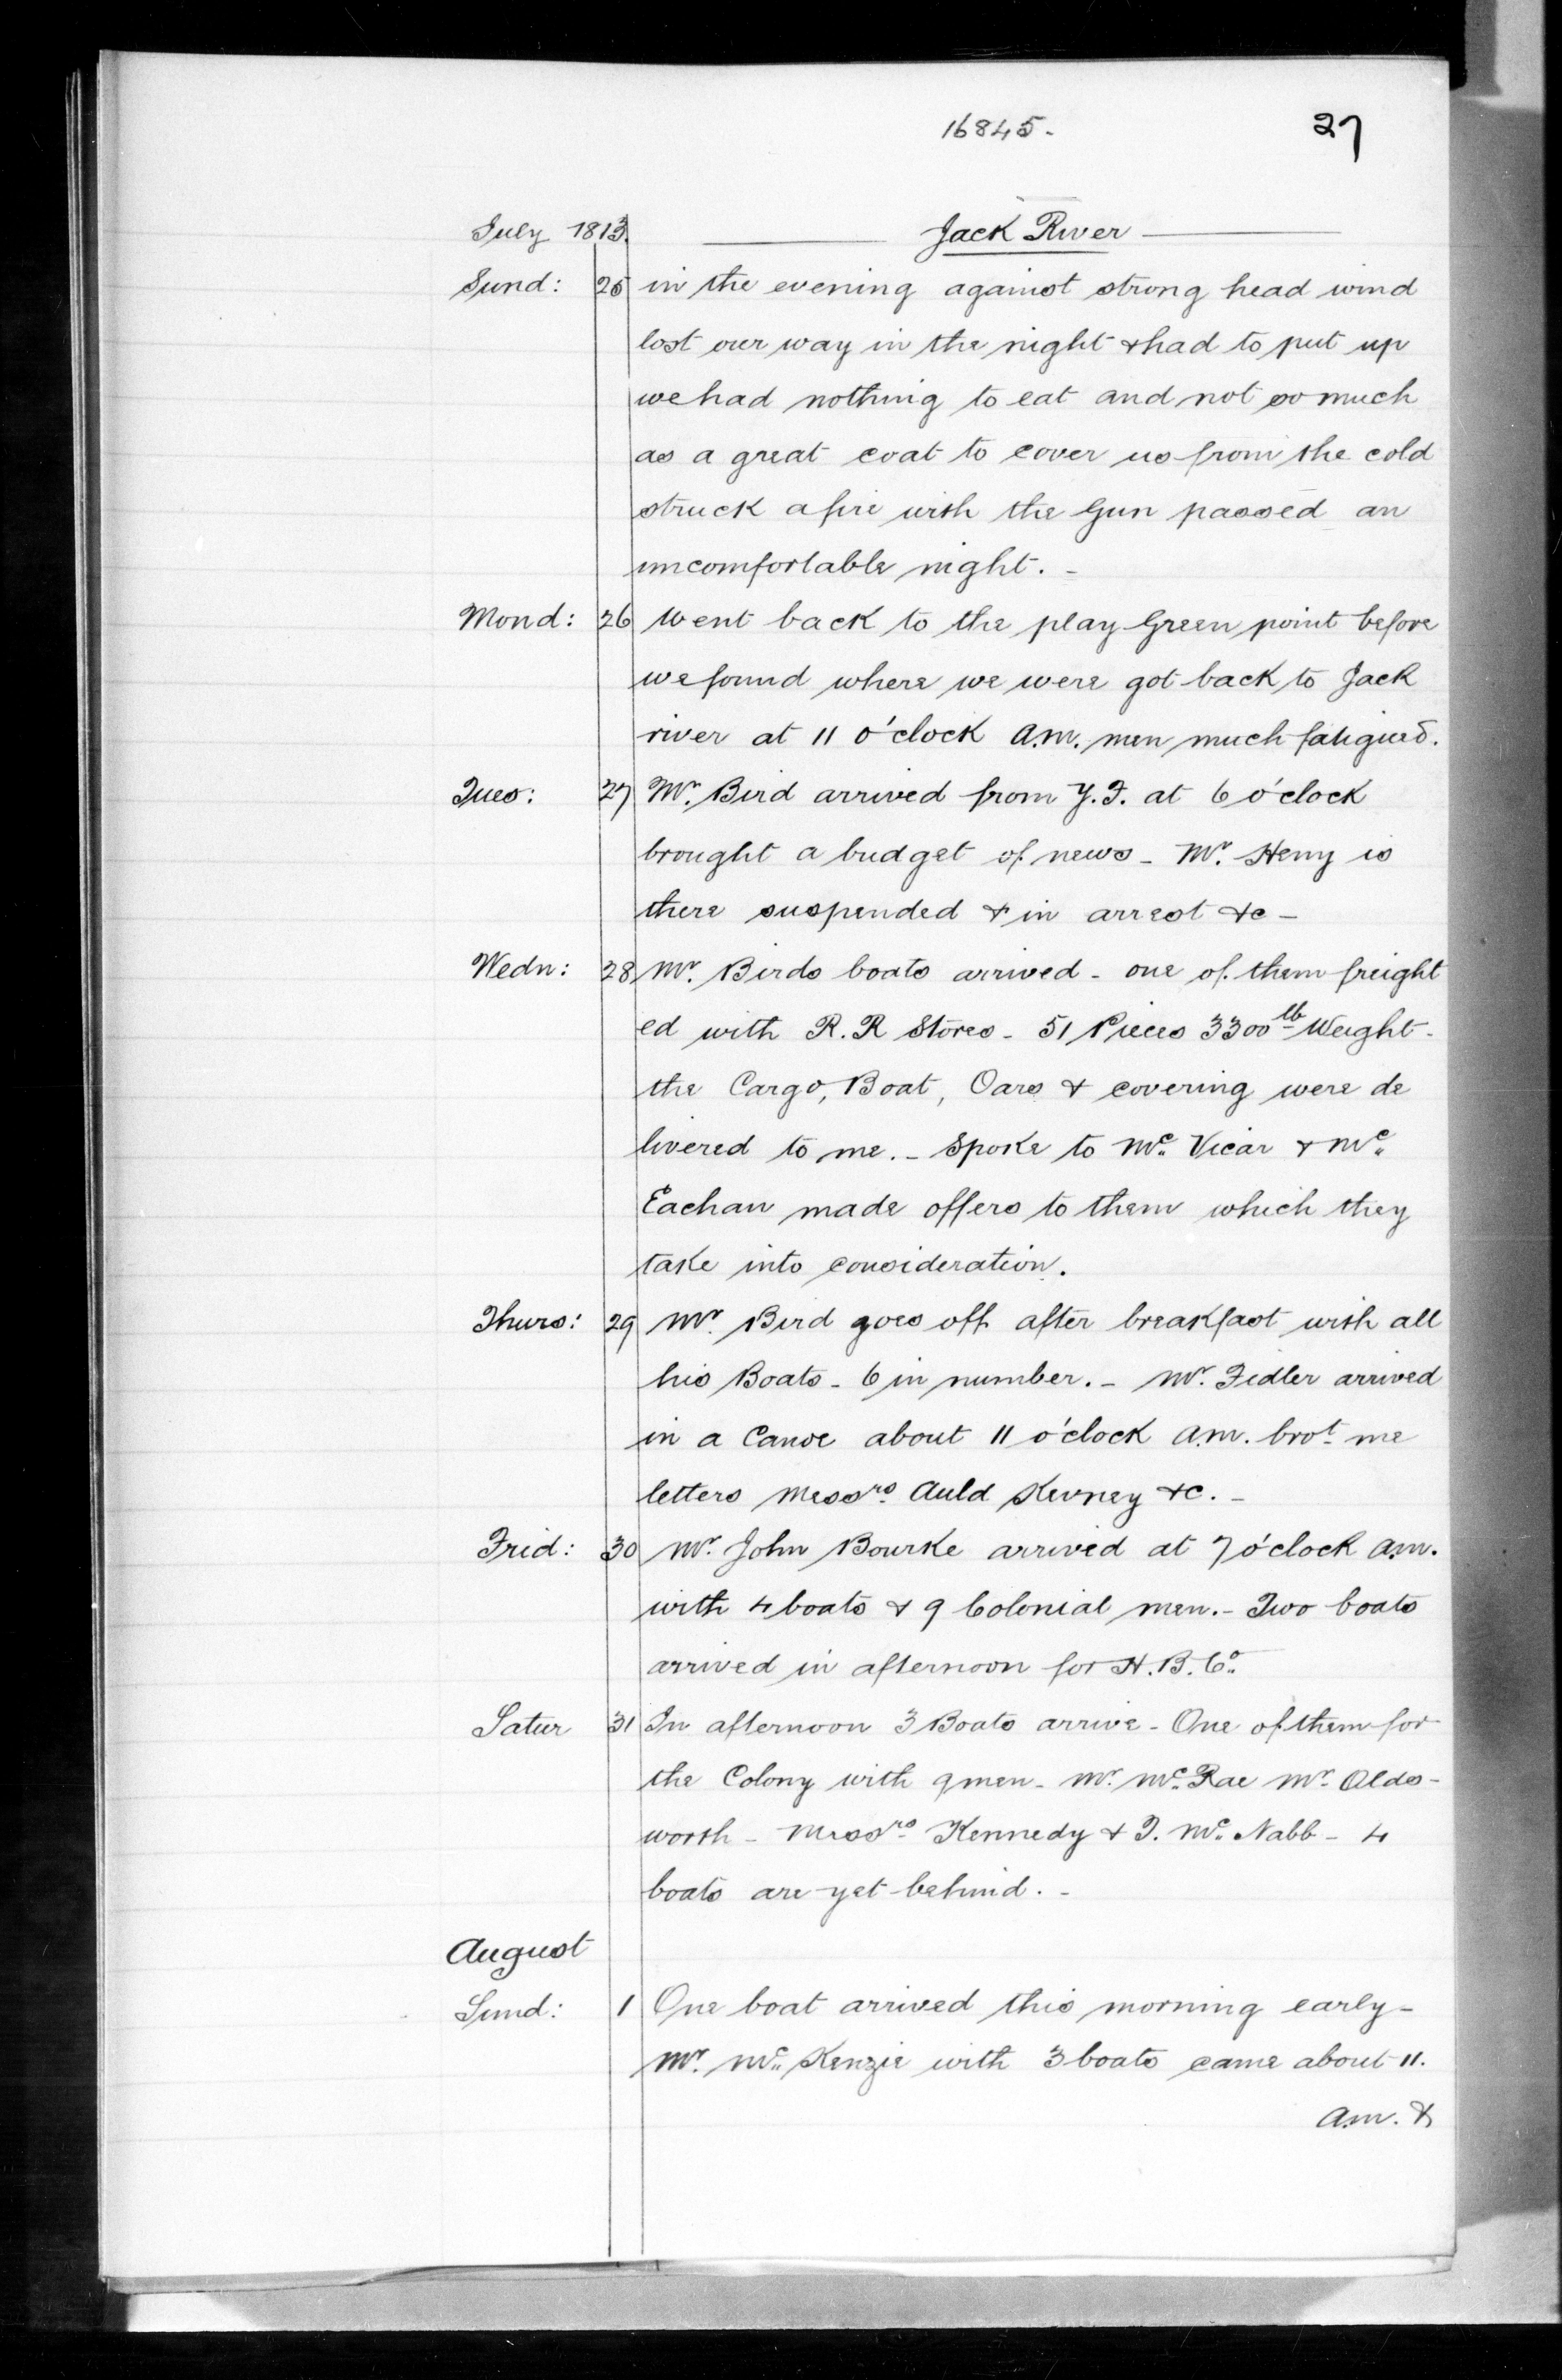 16845. 27
July 1813. Jack River
Sund: 25 in the evening against strong head wind
lost our way in the night & had to put up
we had nothing to eat and not so much
as a great coat to cover us from the cold
struck a fire with the Gun passed an
uncomfortable night. -
Mond: 26 Went back to the play Green point before
we found where we were got back to Jack
river at 11 o'clock a.m. men much fatigued.
Tues: 27 Mr. Bird arrived from Y.F. at 6 o'clock
brought a budget of news - Mr. Heny is
there suspended & in arrest &c -
Wedn: 28 Mr. Birds boats arrived - one of them freight
ed with R.R Stores - 51 Pieces 3300 lb Weight -
the Cargo, Boat, Oars & covering were de
livered to me. - Spoke to Mc. Vicar & Mc.
Eachan made offers to them which they
take into consideration.
Thurs: 29 Mr. Bird goes off after breakfast with all
his Boats - 6 in number. - Mr. Fidler arrived
in a Canoe about 11 o'clock a.m. brot. me
letters Messrs. Auld Kevney &c. -
Frid: 30 Mr. John Bourke arrived at 7 o'clock a.m.
with 4 boats & 9 Colonial men. - Two boats
arrived in afternoon for H.B. Co.
Satur 31 In afternoon 3 Boats arrive - One of them for
the Colony with 9 men - Mr. Mc. Rae Mr. Olds-
worth - Messrs. Kennedy & T. Mc. Nabb - 4
boats are yet behind. -
August
Sund: 1 One boat arrived this morning early -
Mr. Mc. Kenzie with 3 boats came about 11.
a.m. &